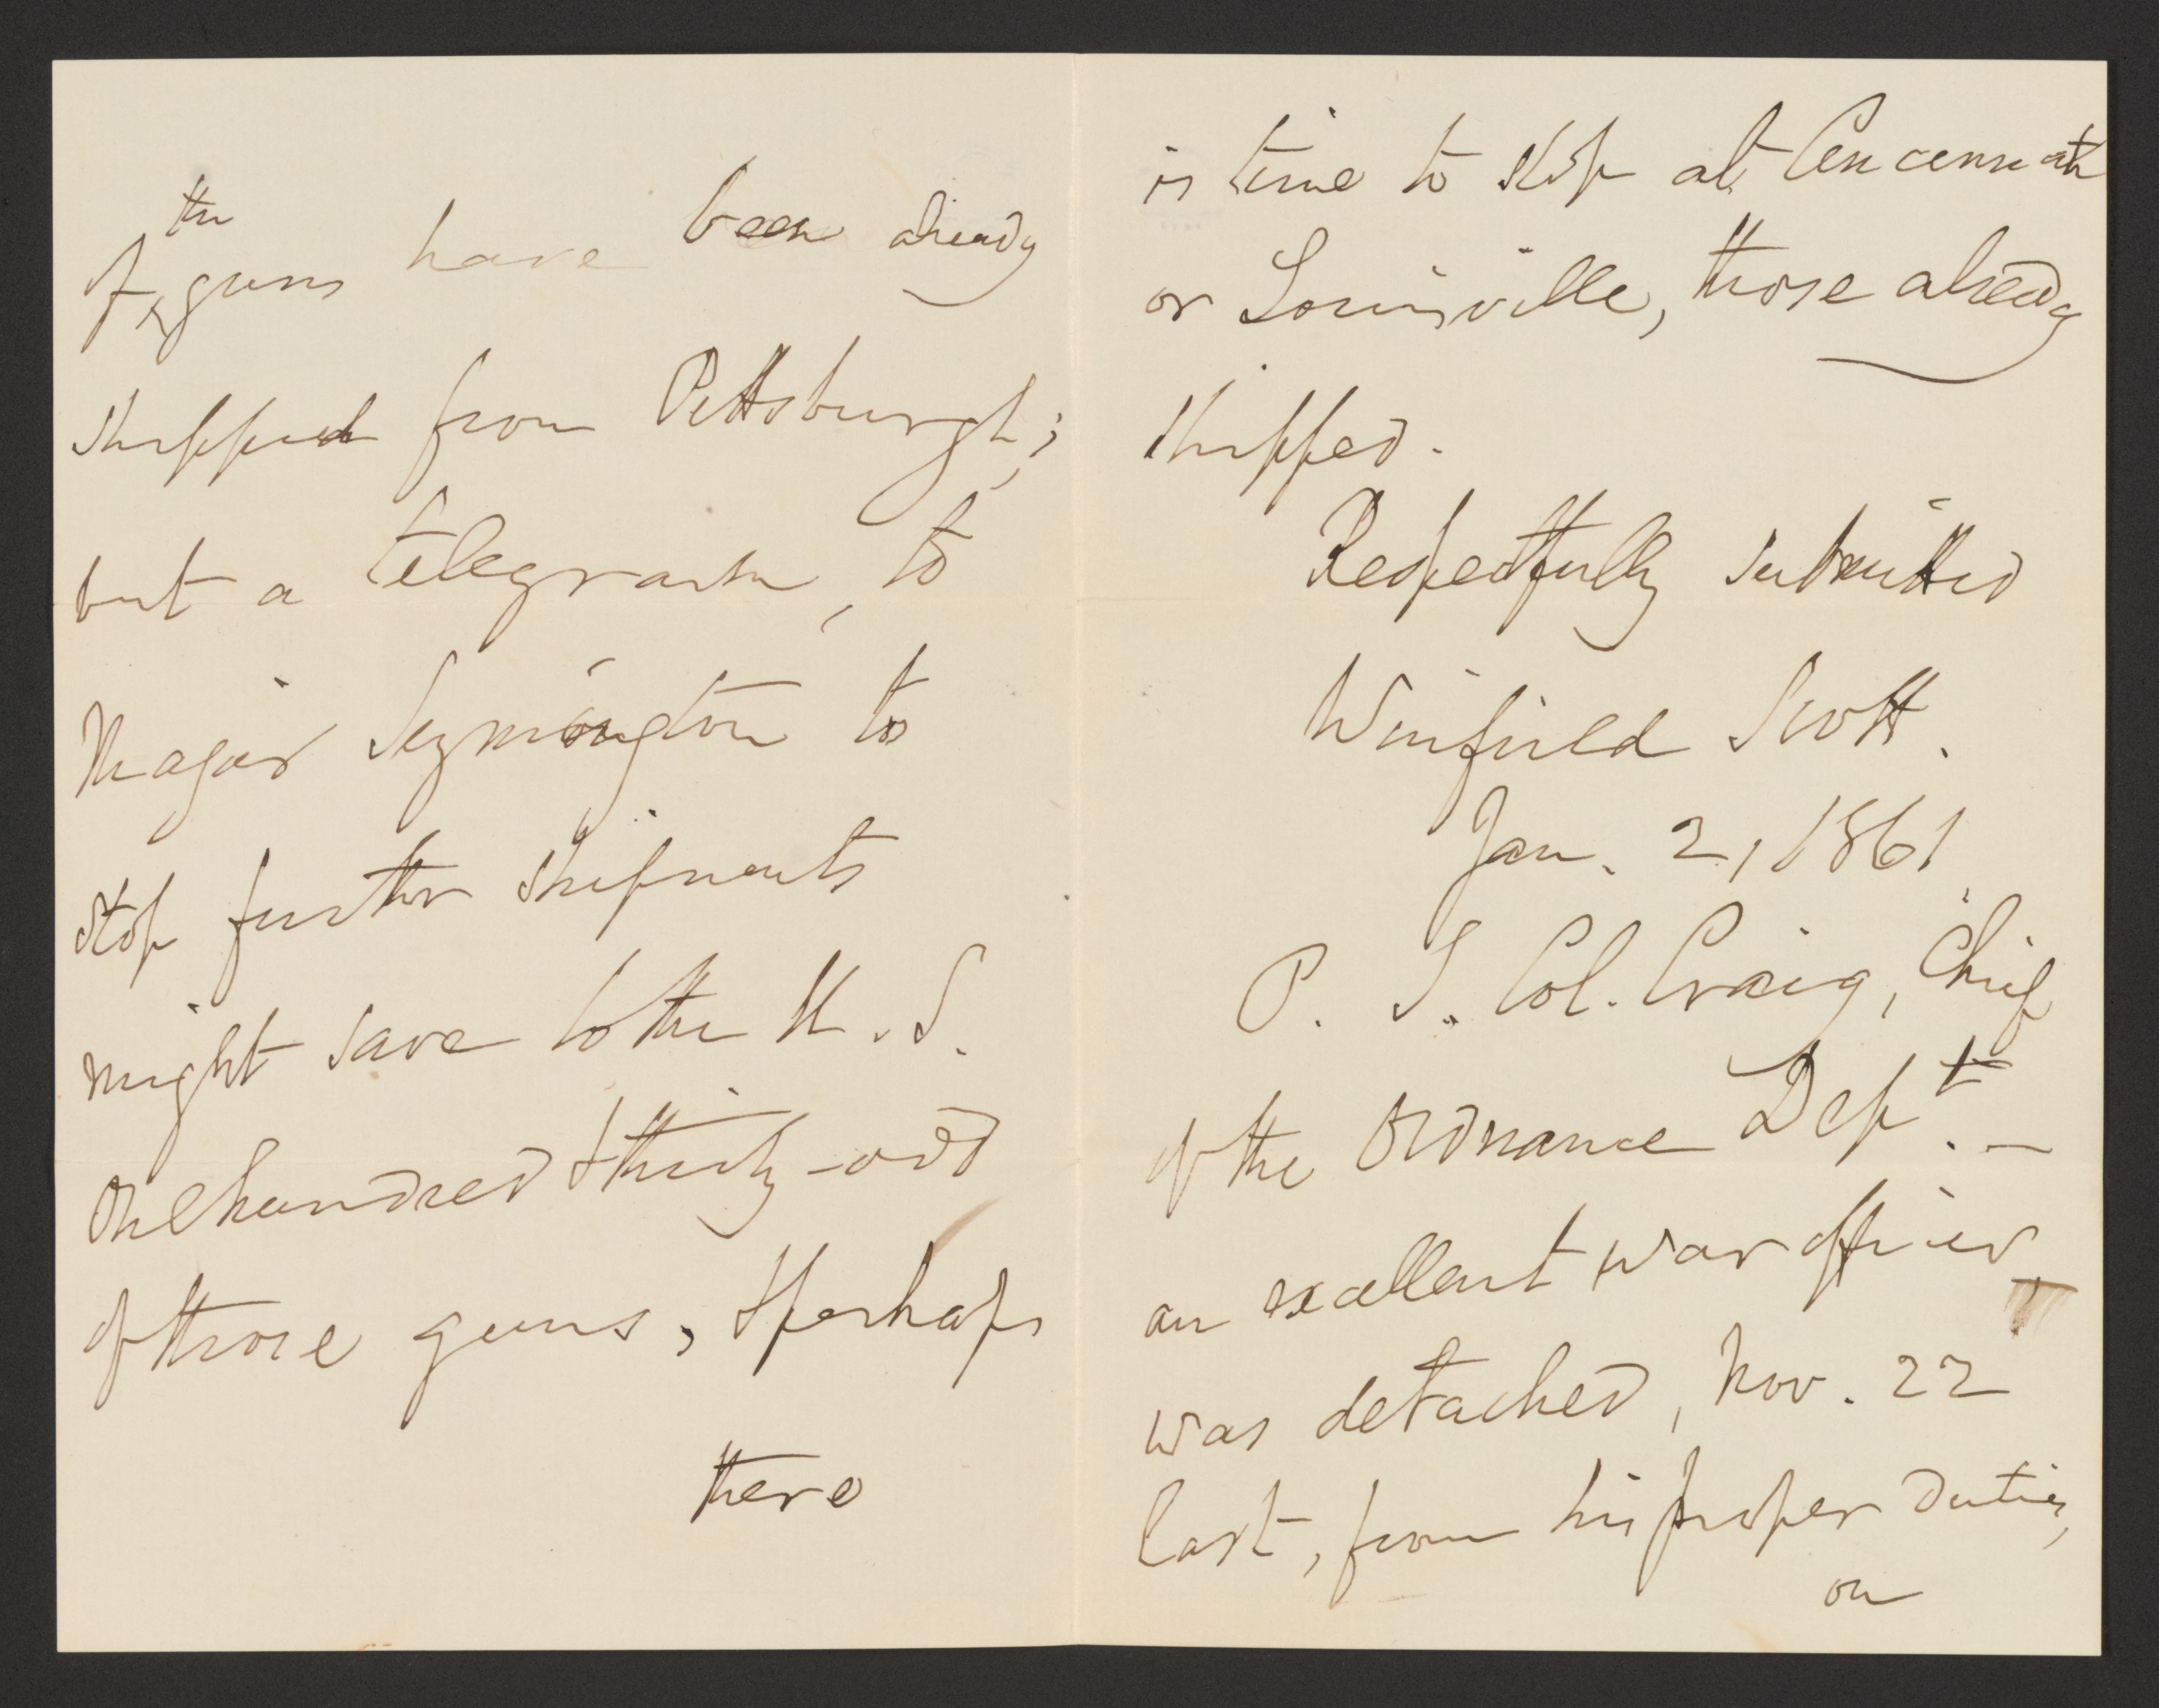 of the guns have been already
shipped from Pittsburgh;
but a telegram, to
Major Symington to
stop further shipments
might save to the U. S.
one hundred & thirty-odd
of those guns, & perhaps
there
is time to stop at Cincinnati
or Louisville, those already
shipped.
Respectfully submitted
Winfield Scott.
Jan. 2, 1861.
P. S. Col. Craig, Chief
of the Ordnance Dept. —
an excellent war officer,
was detached, Nov. 22
last, from his proper duties,
on